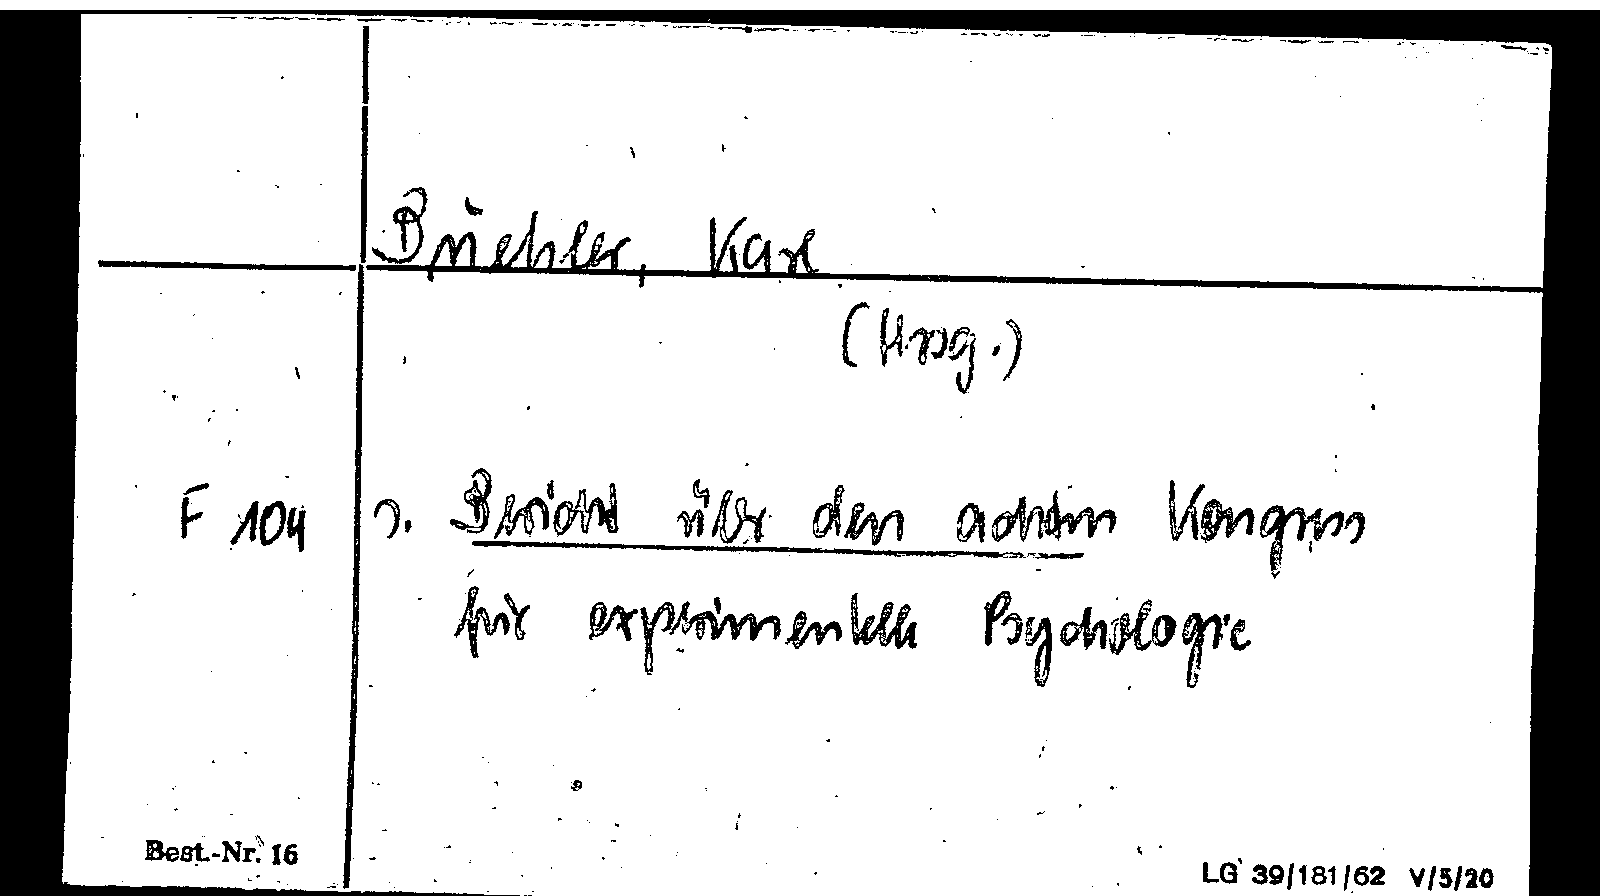 Büehler, Karl
(Hrsg.)
F 104 s. Bericht über den achten Kongress
für experimentelle Psychologie
Best.-Nr. 16
LG 39/181/62 V/5/20